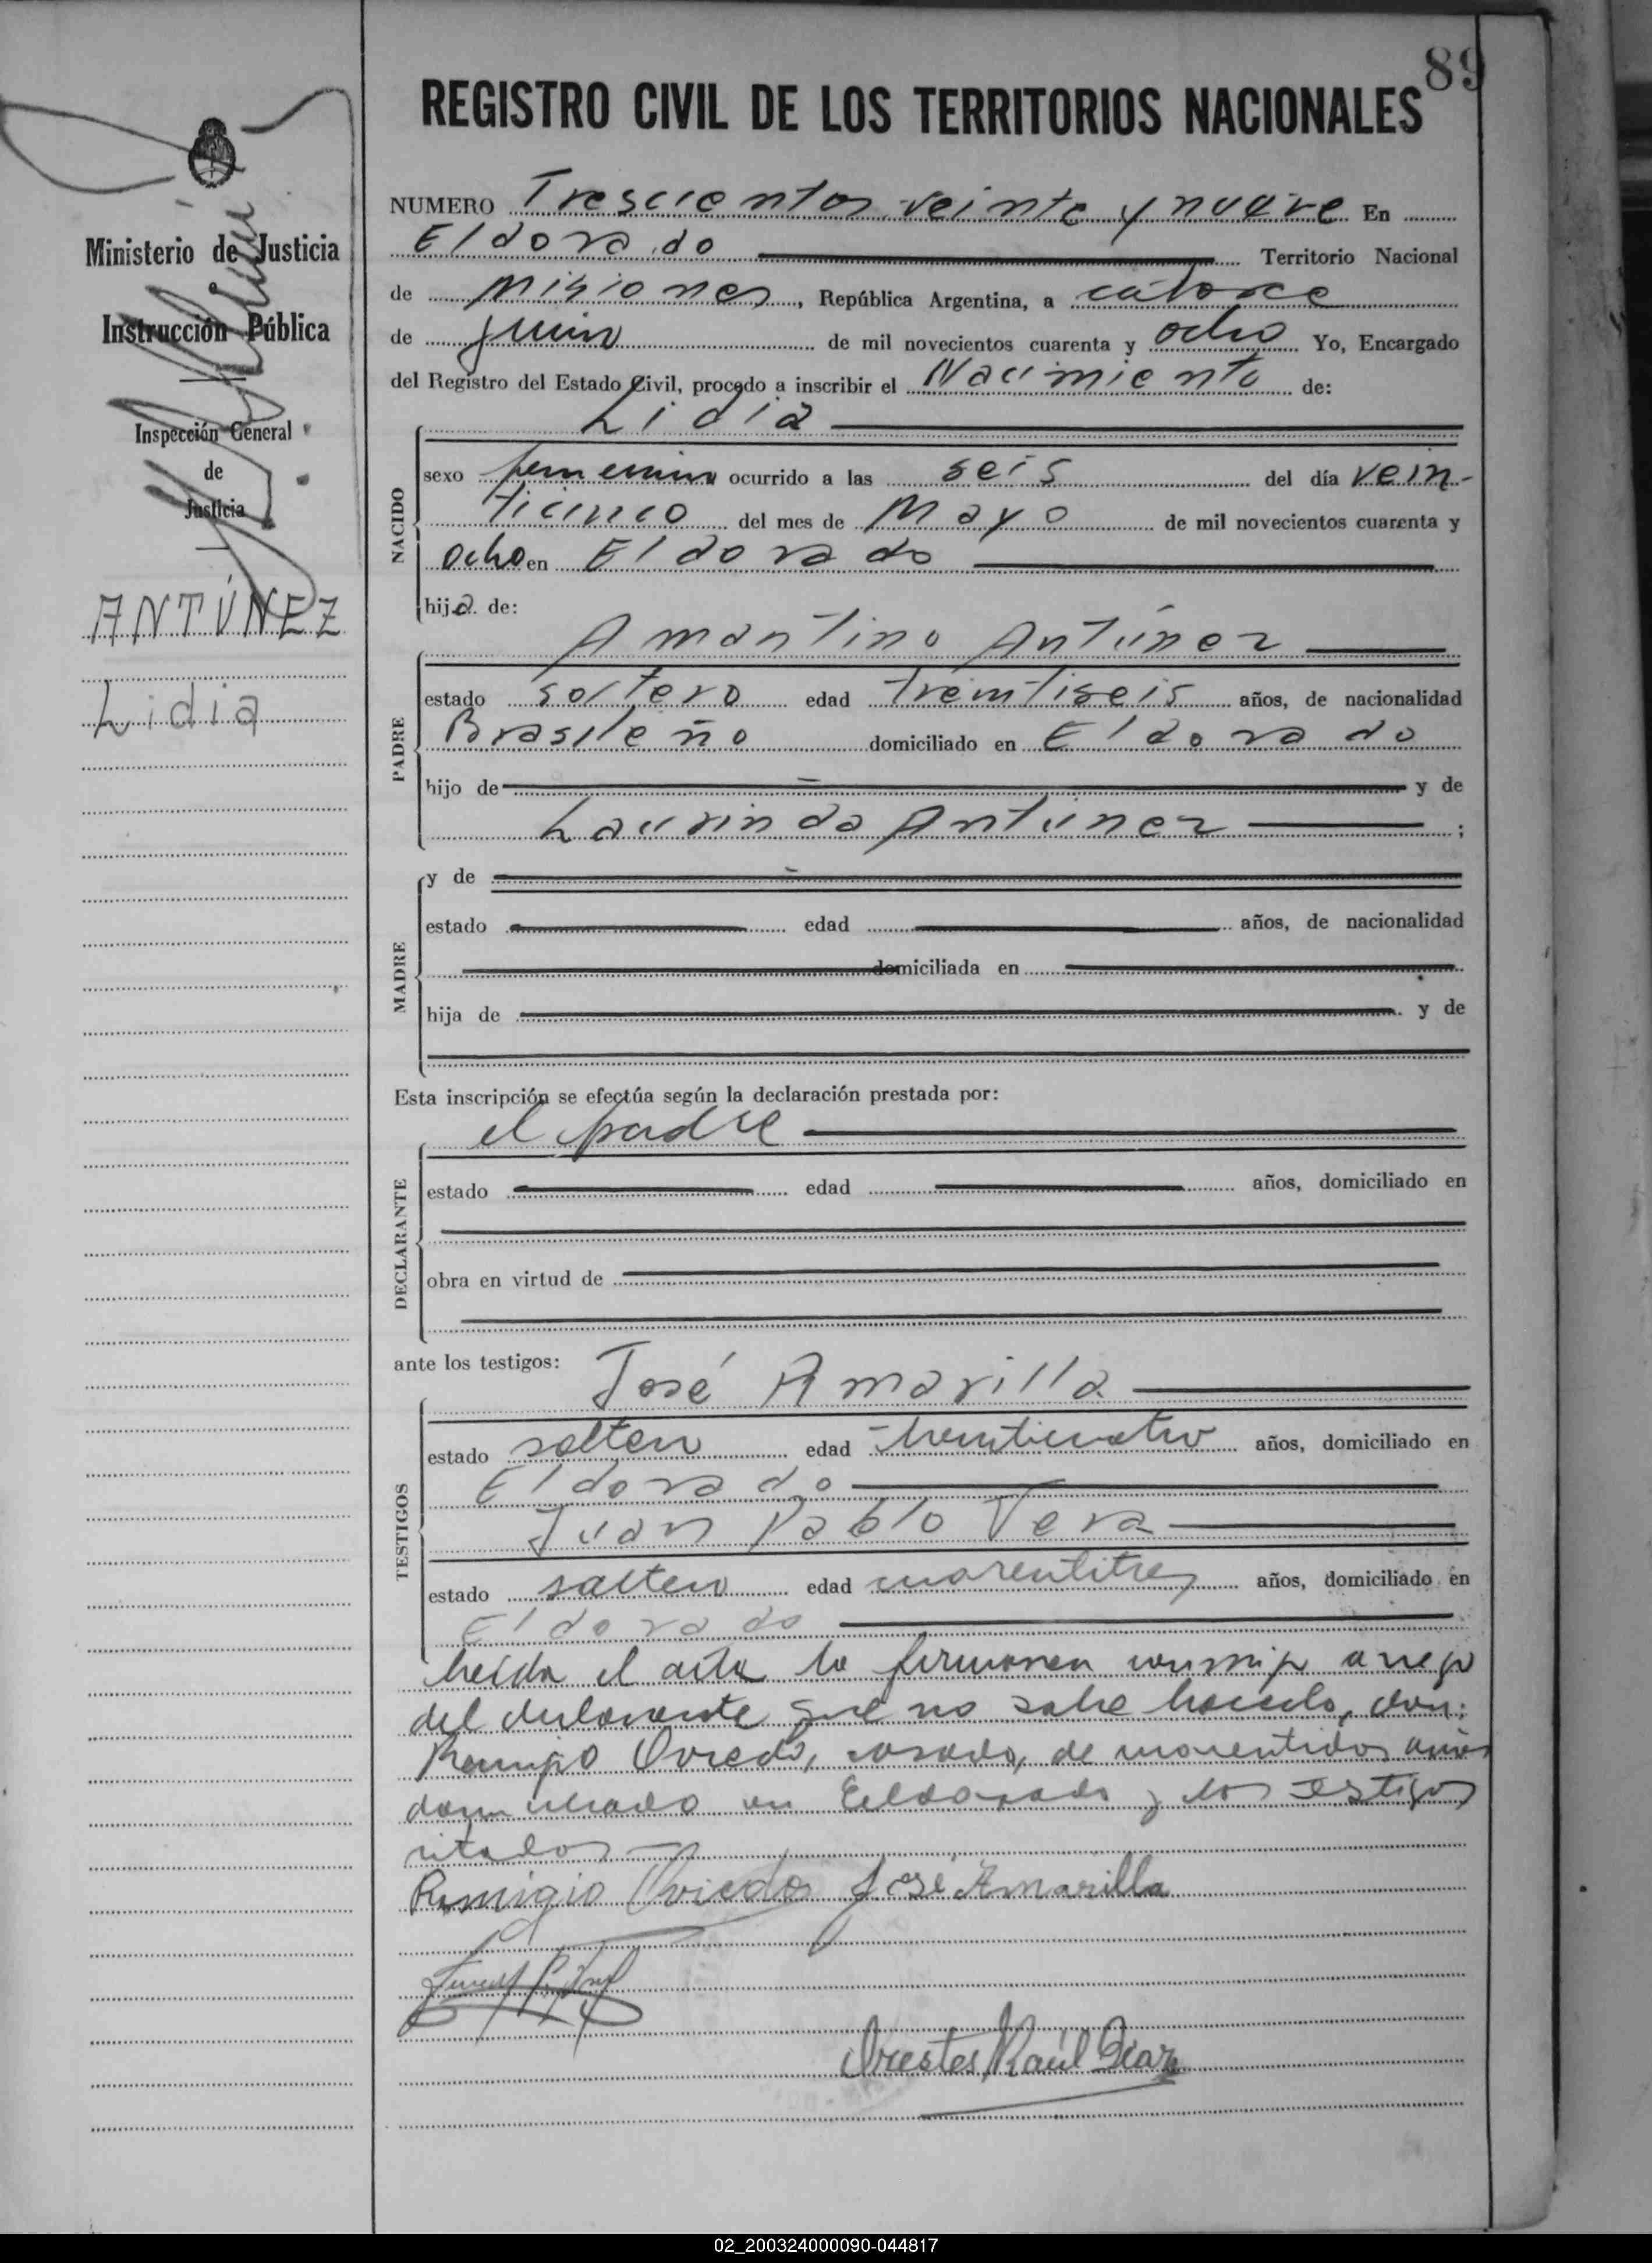 89
REGISTRO CIVIL DE LOS TERRITORIOS NACIONALES
Ministerio de Justicia
e
Instrucción Pública
Inspección General
de
Justicia
ANTÚNEZ
Lidia
NUMERO Trescientos veinte y nueve En
Eldorado Territorio Nacional
de Misiones, República Argentina, a catorce
de junio de mil novecientos cuarenta y ocho Yo, Encargado
del Registro del Estado Civil, procedo a inscribir el Nacimiento de:
NACIDO
Lidia
sexo femenino ocurrido a las seis del día vein-
ticinco del mes de Mayo de mil novecientos cuarenta y
ocho en Eldorado
hija de:
PADRE
Amantino Antúnez
estado soltero edad treintiseis años, de nacionalidad
Brasileño domiciliado en Eldorado
hijo de y de
Laurinda Antúnez ;
MADRE
y de
estado edad años, de nacionalidad
domiciliada en
hija de y de
Esta inscripción se efectúa según la declaración prestada por:
DECLARANTE
el padre
estado edad años, domiciliado en
obra en virtud de
ante los testigos: José Amarilla
TESTIGOS
estado soltero edad treinticuatro años, domiciliado en
Eldorado
Juan Pablo Vera
estado soltero edad cuarentitres años, domiciliado en
Eldorado
Leída el acta la firmaron conmigo a ruego
del declarante que no sabe hacerlo, don:
Remigio Oviedo, casado, de cuarentidos años
domiciliado en Eldorado y los testigos
citados
Remigio Oviedo José Amarilla
Orestes Raúl Díaz
02_200324000090-044817